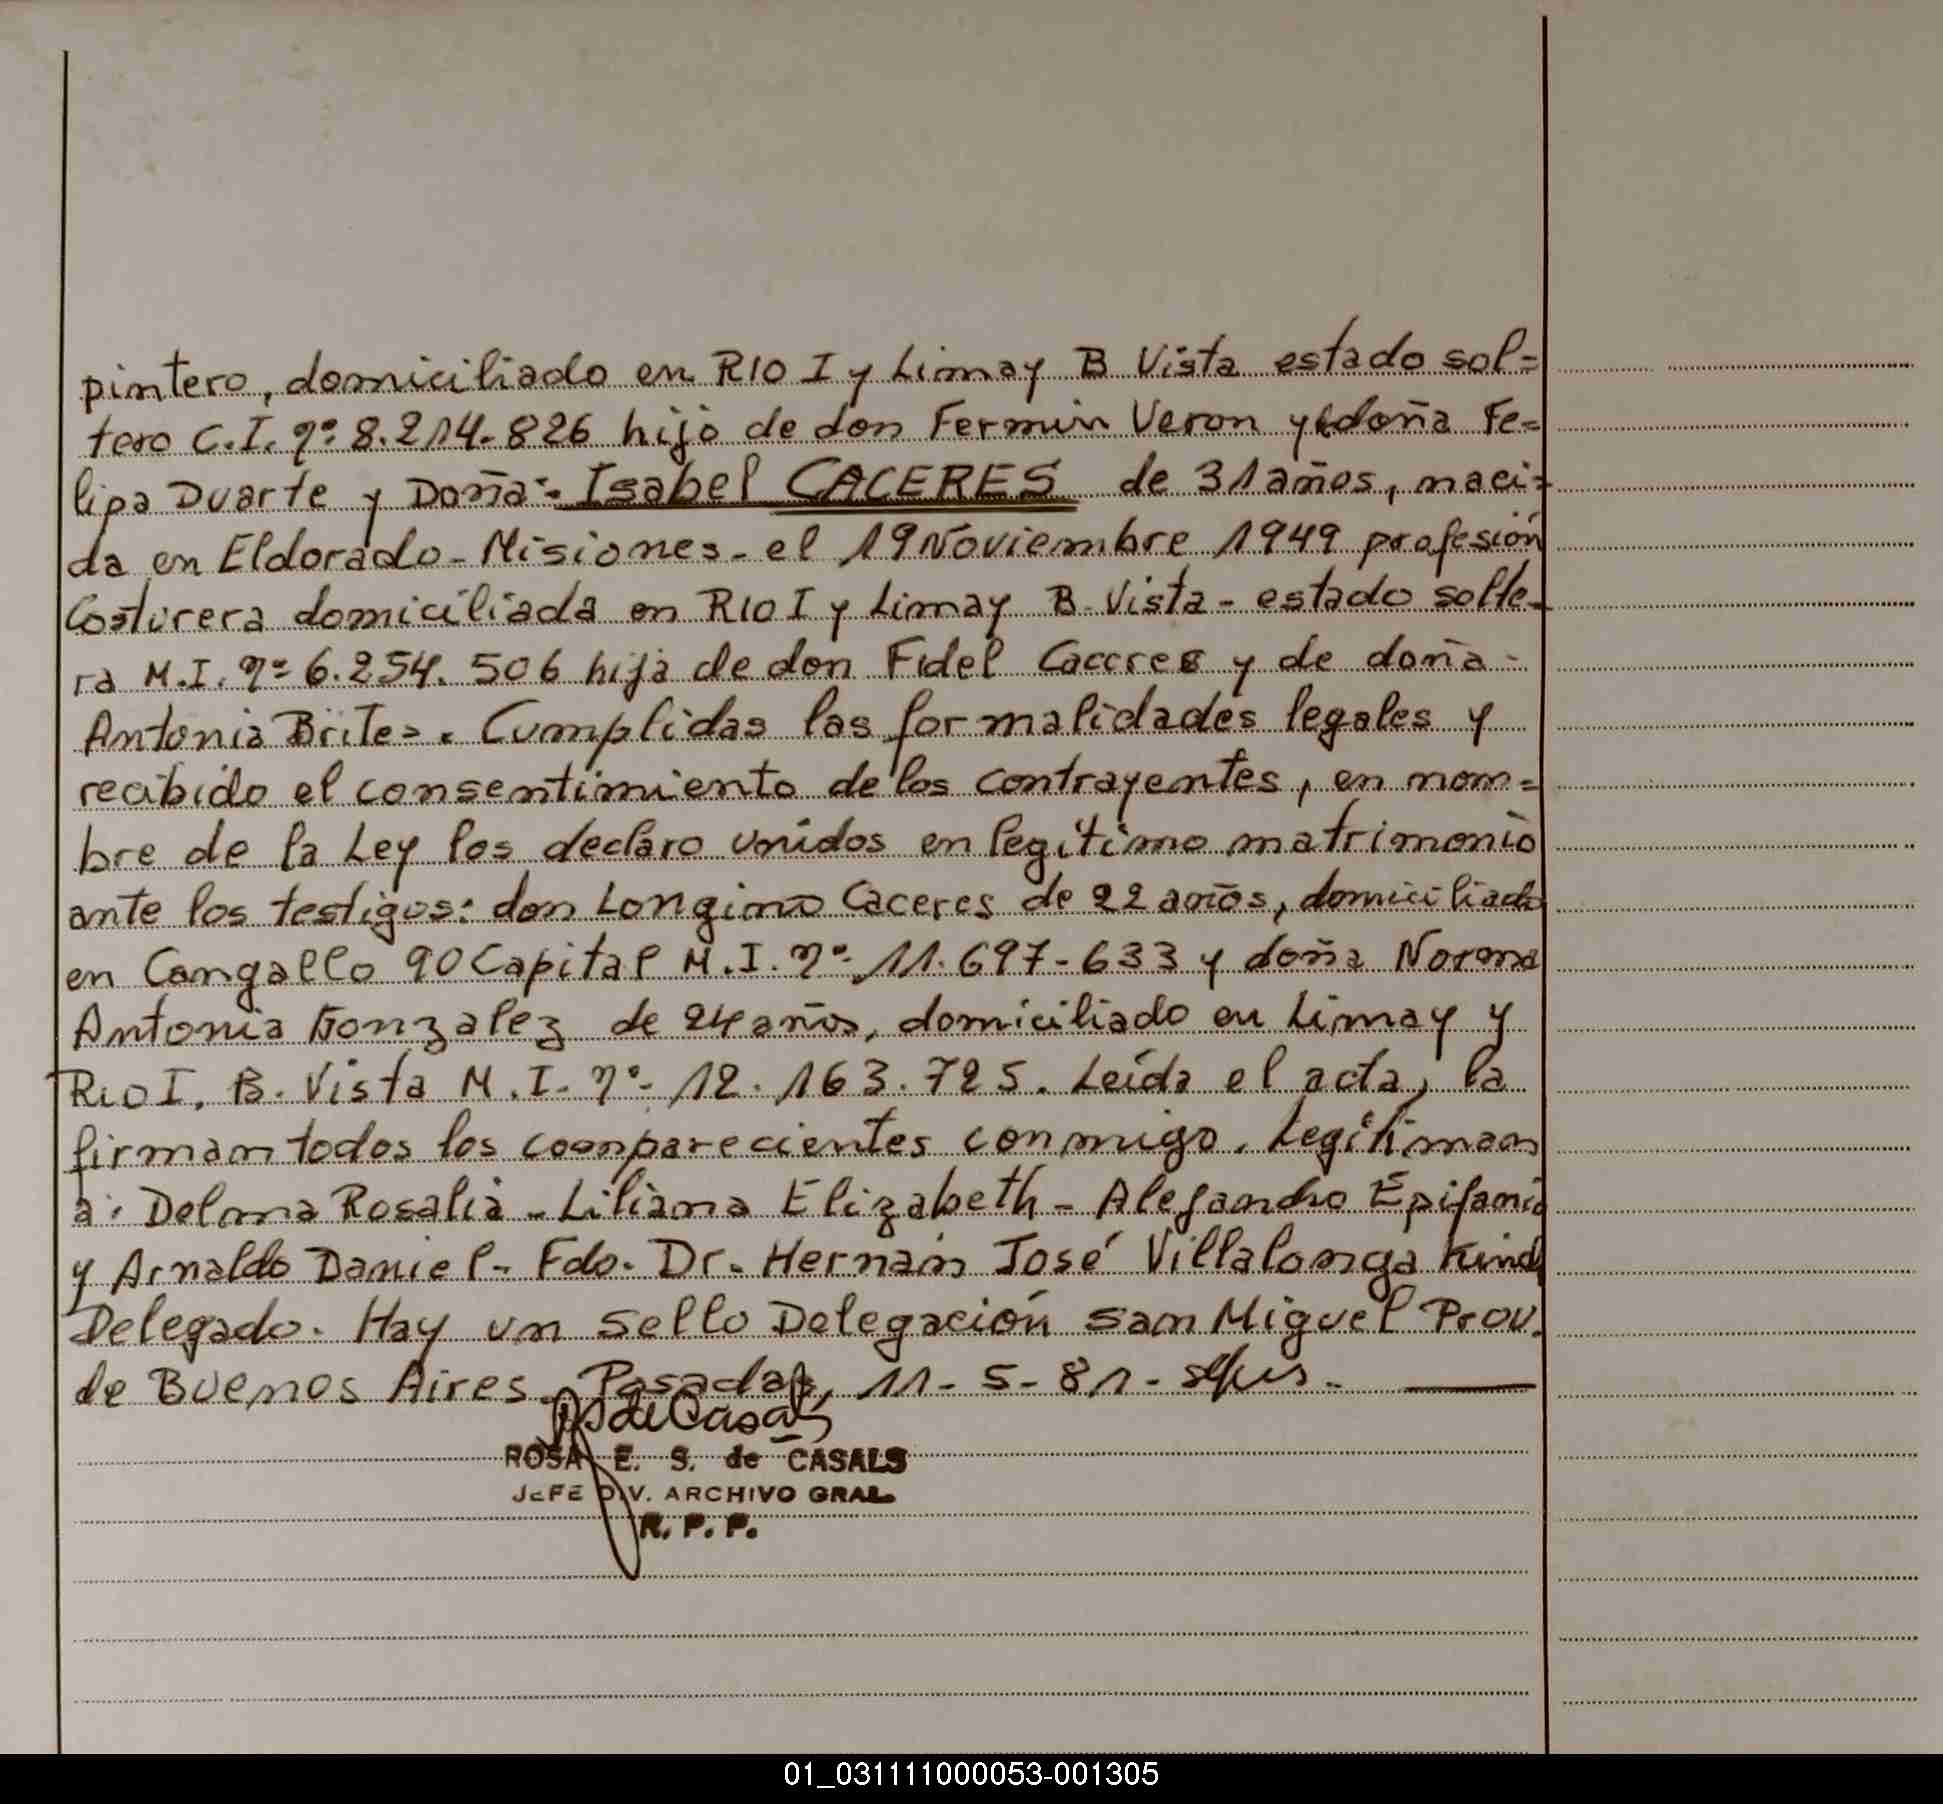 pintero, domiciliado en Rio I y Limay B Vista estado sol=
tero C.I. nº 8.214.826 hijo de don Fermin Veron y doña Fe=
lipa Duarte y Doña:- Isabel CACERES de 31 años, naci=
da en Eldorado - Misiones - el 19 Noviembre 1949 profesión
Costurera domiciliada en Rio I y Limay B. Vista - estado solte-
ra M.I. nº 6.254.506 hija de don Fidel Caceres y de doña -
Antonia Britez. Cumplidas las formalidades legales y
recibido el consentimiento de los contrayentes, en nom=
bre de la Ley los declaro unidos en legítimo matrimonio
ante los testigos: don Longino Caceres de 22 años, domiciliado
en Cangallo 90 Capital M.I. nº 11.697-633 y doña Norma
Antonia Gonzalez de 24 años, domiciliado en Limay y
Rio I. B. Vista M.I. nº 12.163.725. Leída el acta, la
firman todos los comparecientes conmigo. Legitiman
a: Delma Rosalia - Liliana Elizabeth - Alejandro Epifanio
y Arnaldo Daniel - Fdo. Dr. Hernán José Villalonga
Delegado. Hay un sello Delegación San Miguel Prov.
de Buenos Aires. Posadas, 11-5-81-
de Casals
ROSA E. S. de CASALS
JEFE DIV. ARCHIVO GRAL.
R. P. P.
01_031111000053-001305